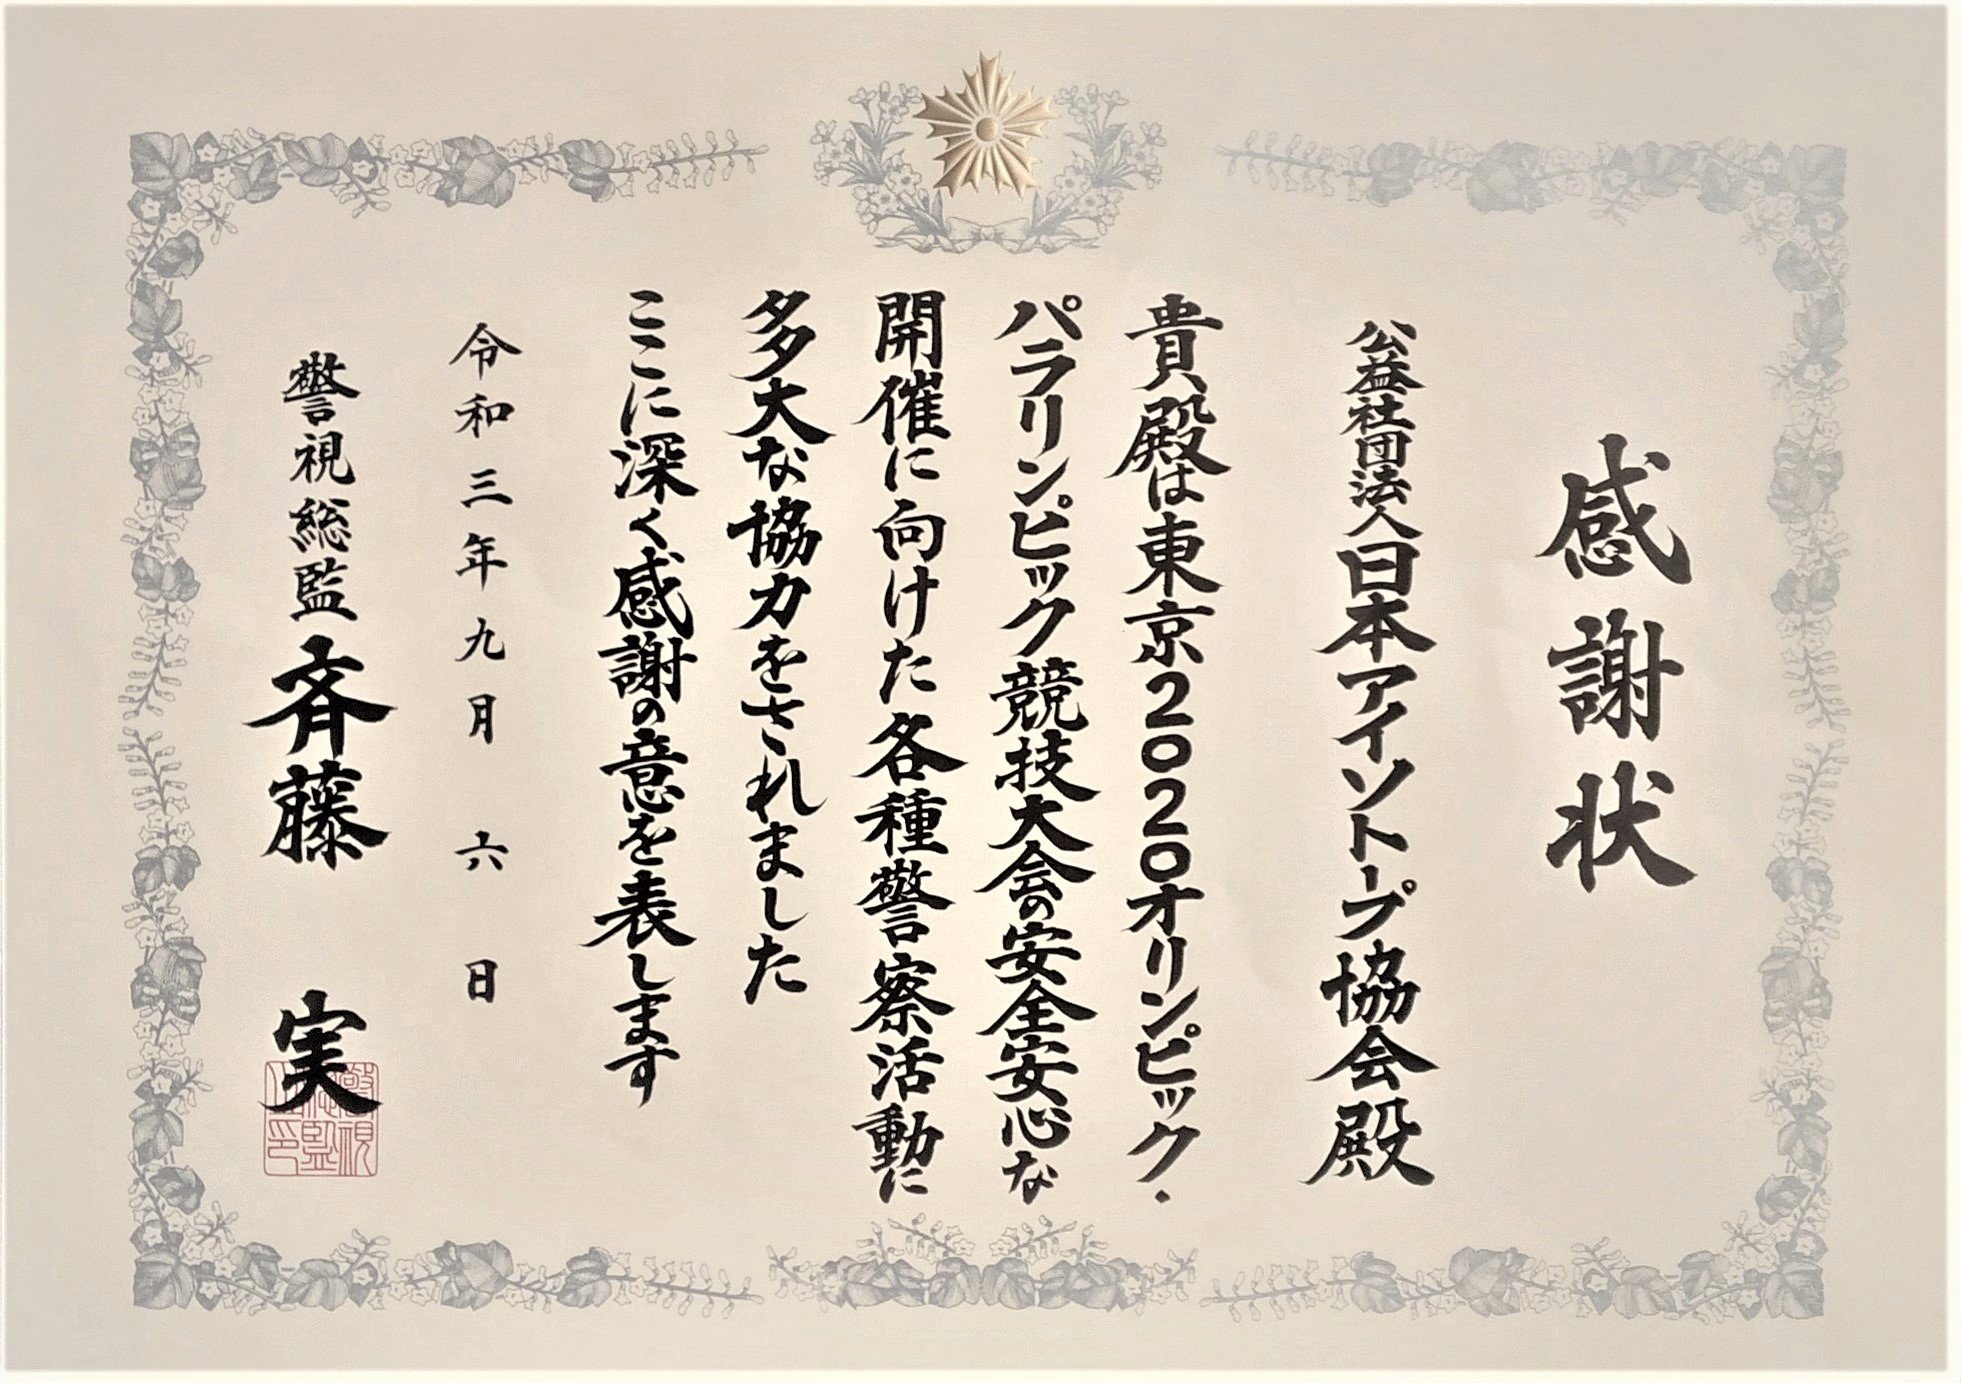 感謝状
公益社団法人日本アイソトープ協会殿
貴殿は東京2020オリンピック・
パラリンピック競技大会の安全安心な
開催に向けた各種警察活動に
多大な協力をされました
ここに深く感謝の意を表します
令和三年九月六日
警視総監 斉藤 実
警視総監之印